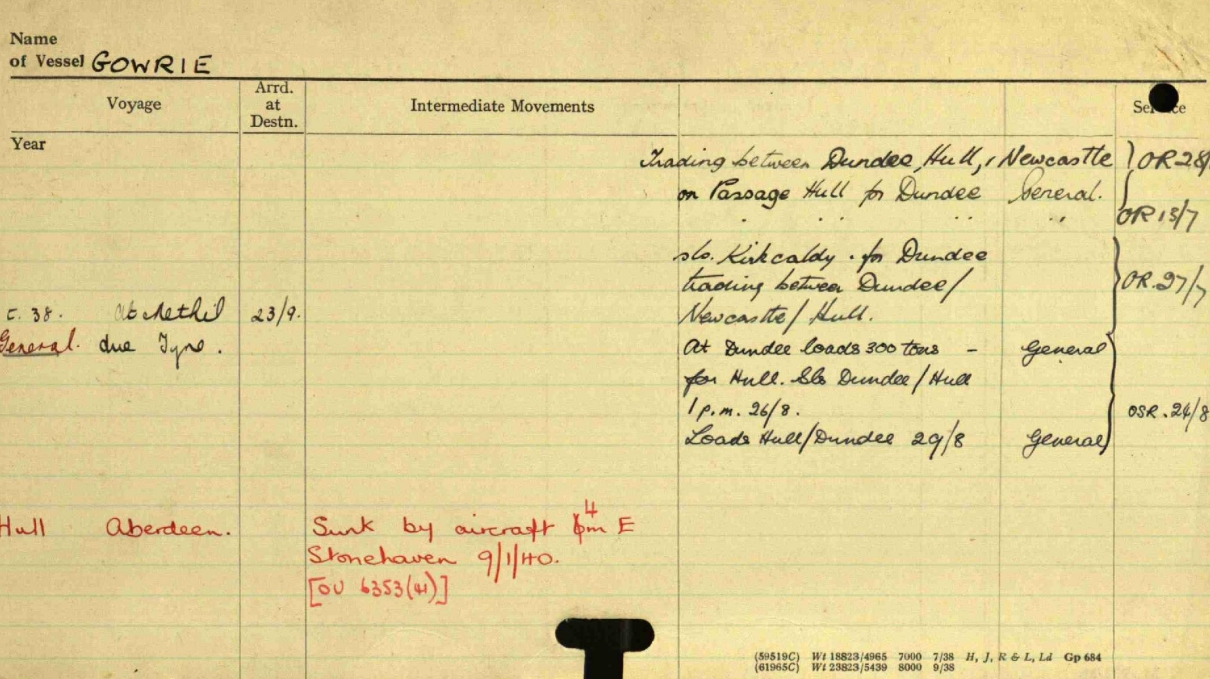 Name
of Vessel GOWRIE
Voyage
Arrd.
at
Destn.
Intermediate Movements
Year
Trading between Dundee, Hull, & Newcastle } OR 28/
on Passage Hull for Dundee General.
" " " " OR 13/7
sld. Kirkcaldy . for Dundee
trading between Dundee/ OR.27/7
38. Methil 23/9. Newcastle/ Hull.
General. due Tyne. At Dundee loads 300 tons – General
for Hull. Slds Dundee/Hull
1 p.m. 26/8. OSR.24/8
Loads Hull/Dundee 29/8 General
Hull Aberdeen. Sunk by aircraft 4 m E
Stonehaven 9/1/40.
[OU 6353(41)]
(59519C) Wt 18823/4965 7000 7/38 H, J, R & L, Ld Gp 684
(61965C) Wt 23823/5439 8000 9/38